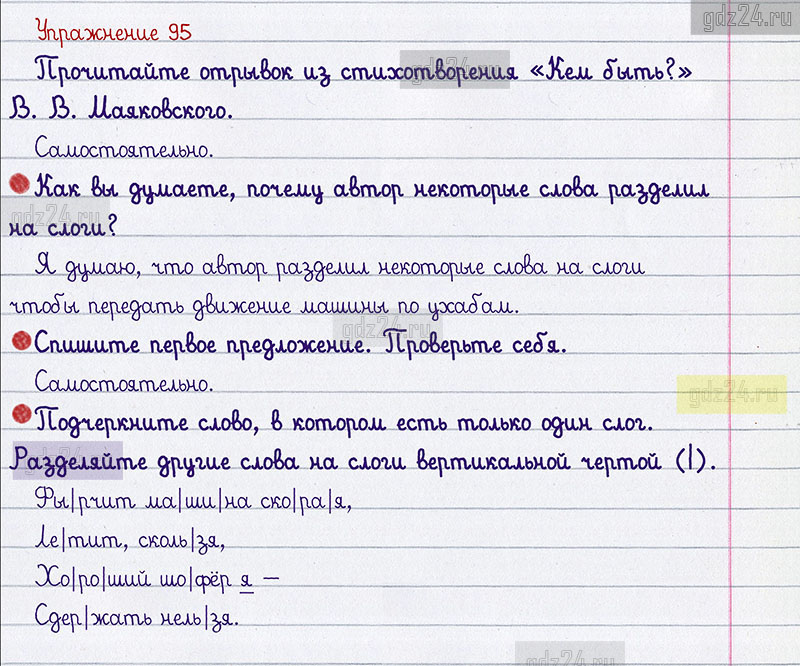 gdz24.ru
Упражнение 95
Прочитайте отрывок из стихотворения «Кем быть?»
gdz24.ru
В. В. Маяковского.
Самостоятельно.
Как вы думаете, почему автор некоторые слова разделил
gdz24.ru
на слоги?
Я думаю, что автор разделил некоторые слова на слоги
чтобы передать движение машины по ухабам.
gdz24.ru
Спишите первое предложение. Проверьте себя.
Самостоятельно.
gdz24.ru
Подчеркните слово, в котором есть только один слог.
Разделяйте другие слова на слоги вертикальной чертой (|).
Фы|рчит ма|ши|на ско|ра|я,
Ле|тит, сколь|зя,
Хо|ро|ший шо|фёр я –
Сдер|жать нель|зя.
gdz24.ru